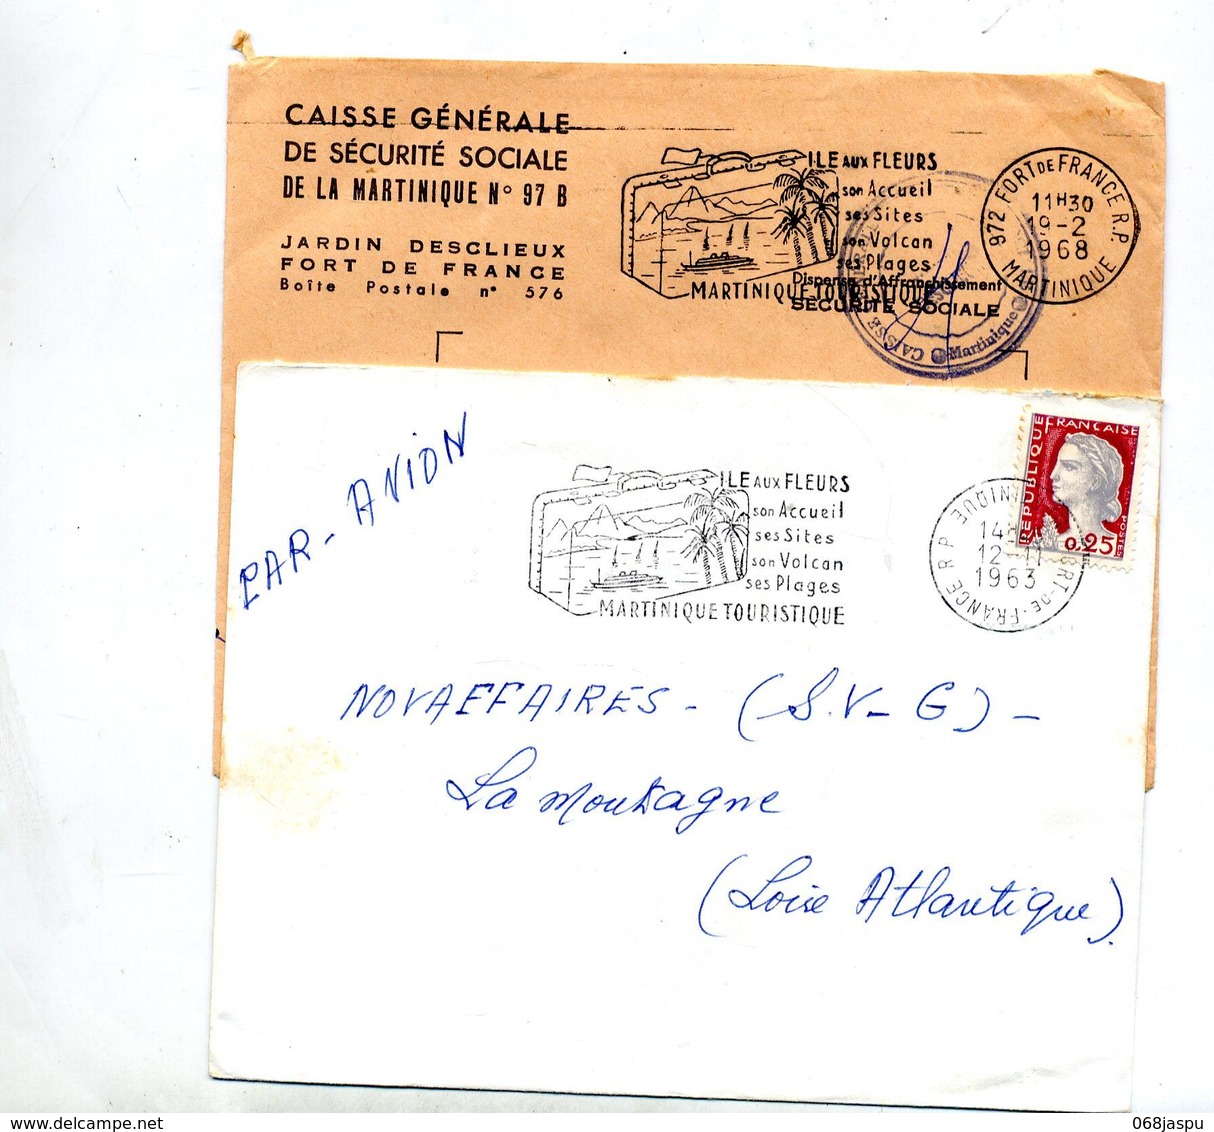 CAISSE GÉNÉRALE
DE SÉCURITÉ SOCIALE
DE LA MARTINIQUE N° 97 B
JARDIN DESCLIEUX
FORT DE FRANCE
Boîte Postale n° 576
ILE AUX FLEURS
son Accueil
ses Sites
son Volcan
ses Plages
MARTINIQUE TOURISTIQUE
Dispense d'Affranchissement
SÉCURITÉ SOCIALE
972 FORT DE FRANCE R.P.
11H30
19-2
1968
MARTINIQUE
CAISSE
Martinique
PAR-AVION
ILE AUX FLEURS
son Accueil
ses Sites
son Volcan
ses Plages
MARTINIQUE TOURISTIQUE
REPUBLIQUE FRANCAISE
0,25
POSTES
FORT-DE-FRANCE R P
12-11
1963
NOVAFFAIRES - (S.V-G) -
La Montagne
(Loire Atlantique)
068jaspu